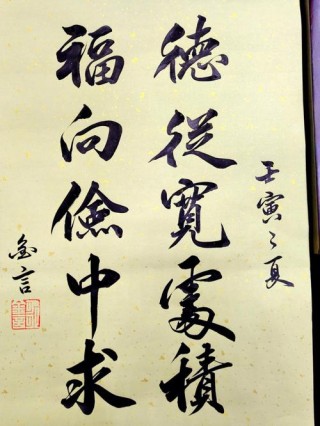 壬寅之夏
德從寬處積
福向儉中求
金言